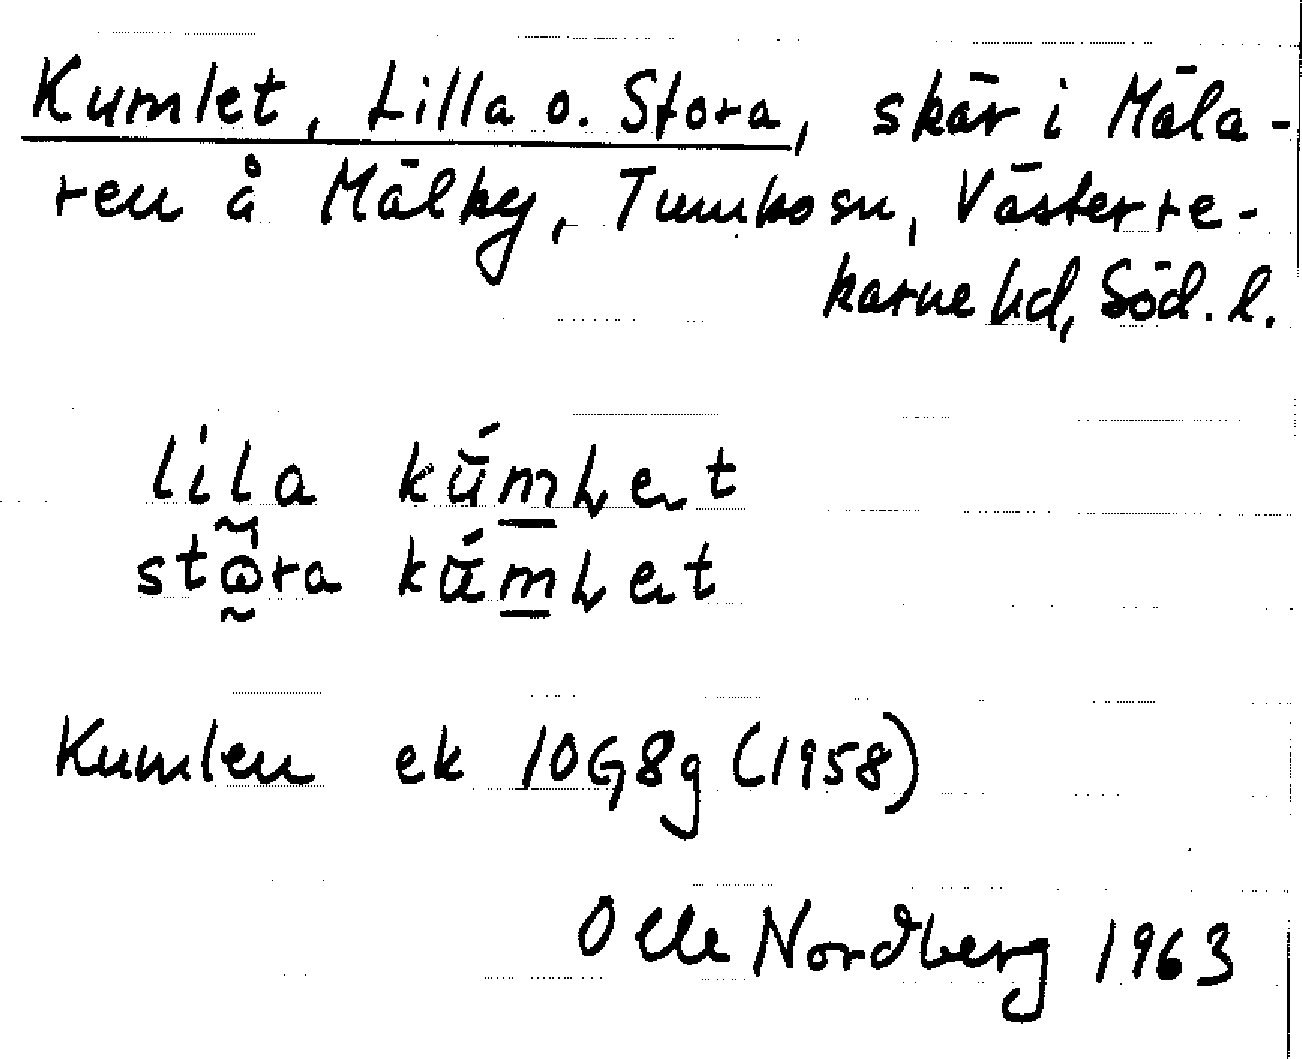 Kumlet, Lilla o. Stora, skär i Mäla-
ren å Mälby, Tumbosn, Västerre-
karne hd, Söd. l.
lila
Kumlen ek 10G8g (1958)
Olle Nordberg 1963